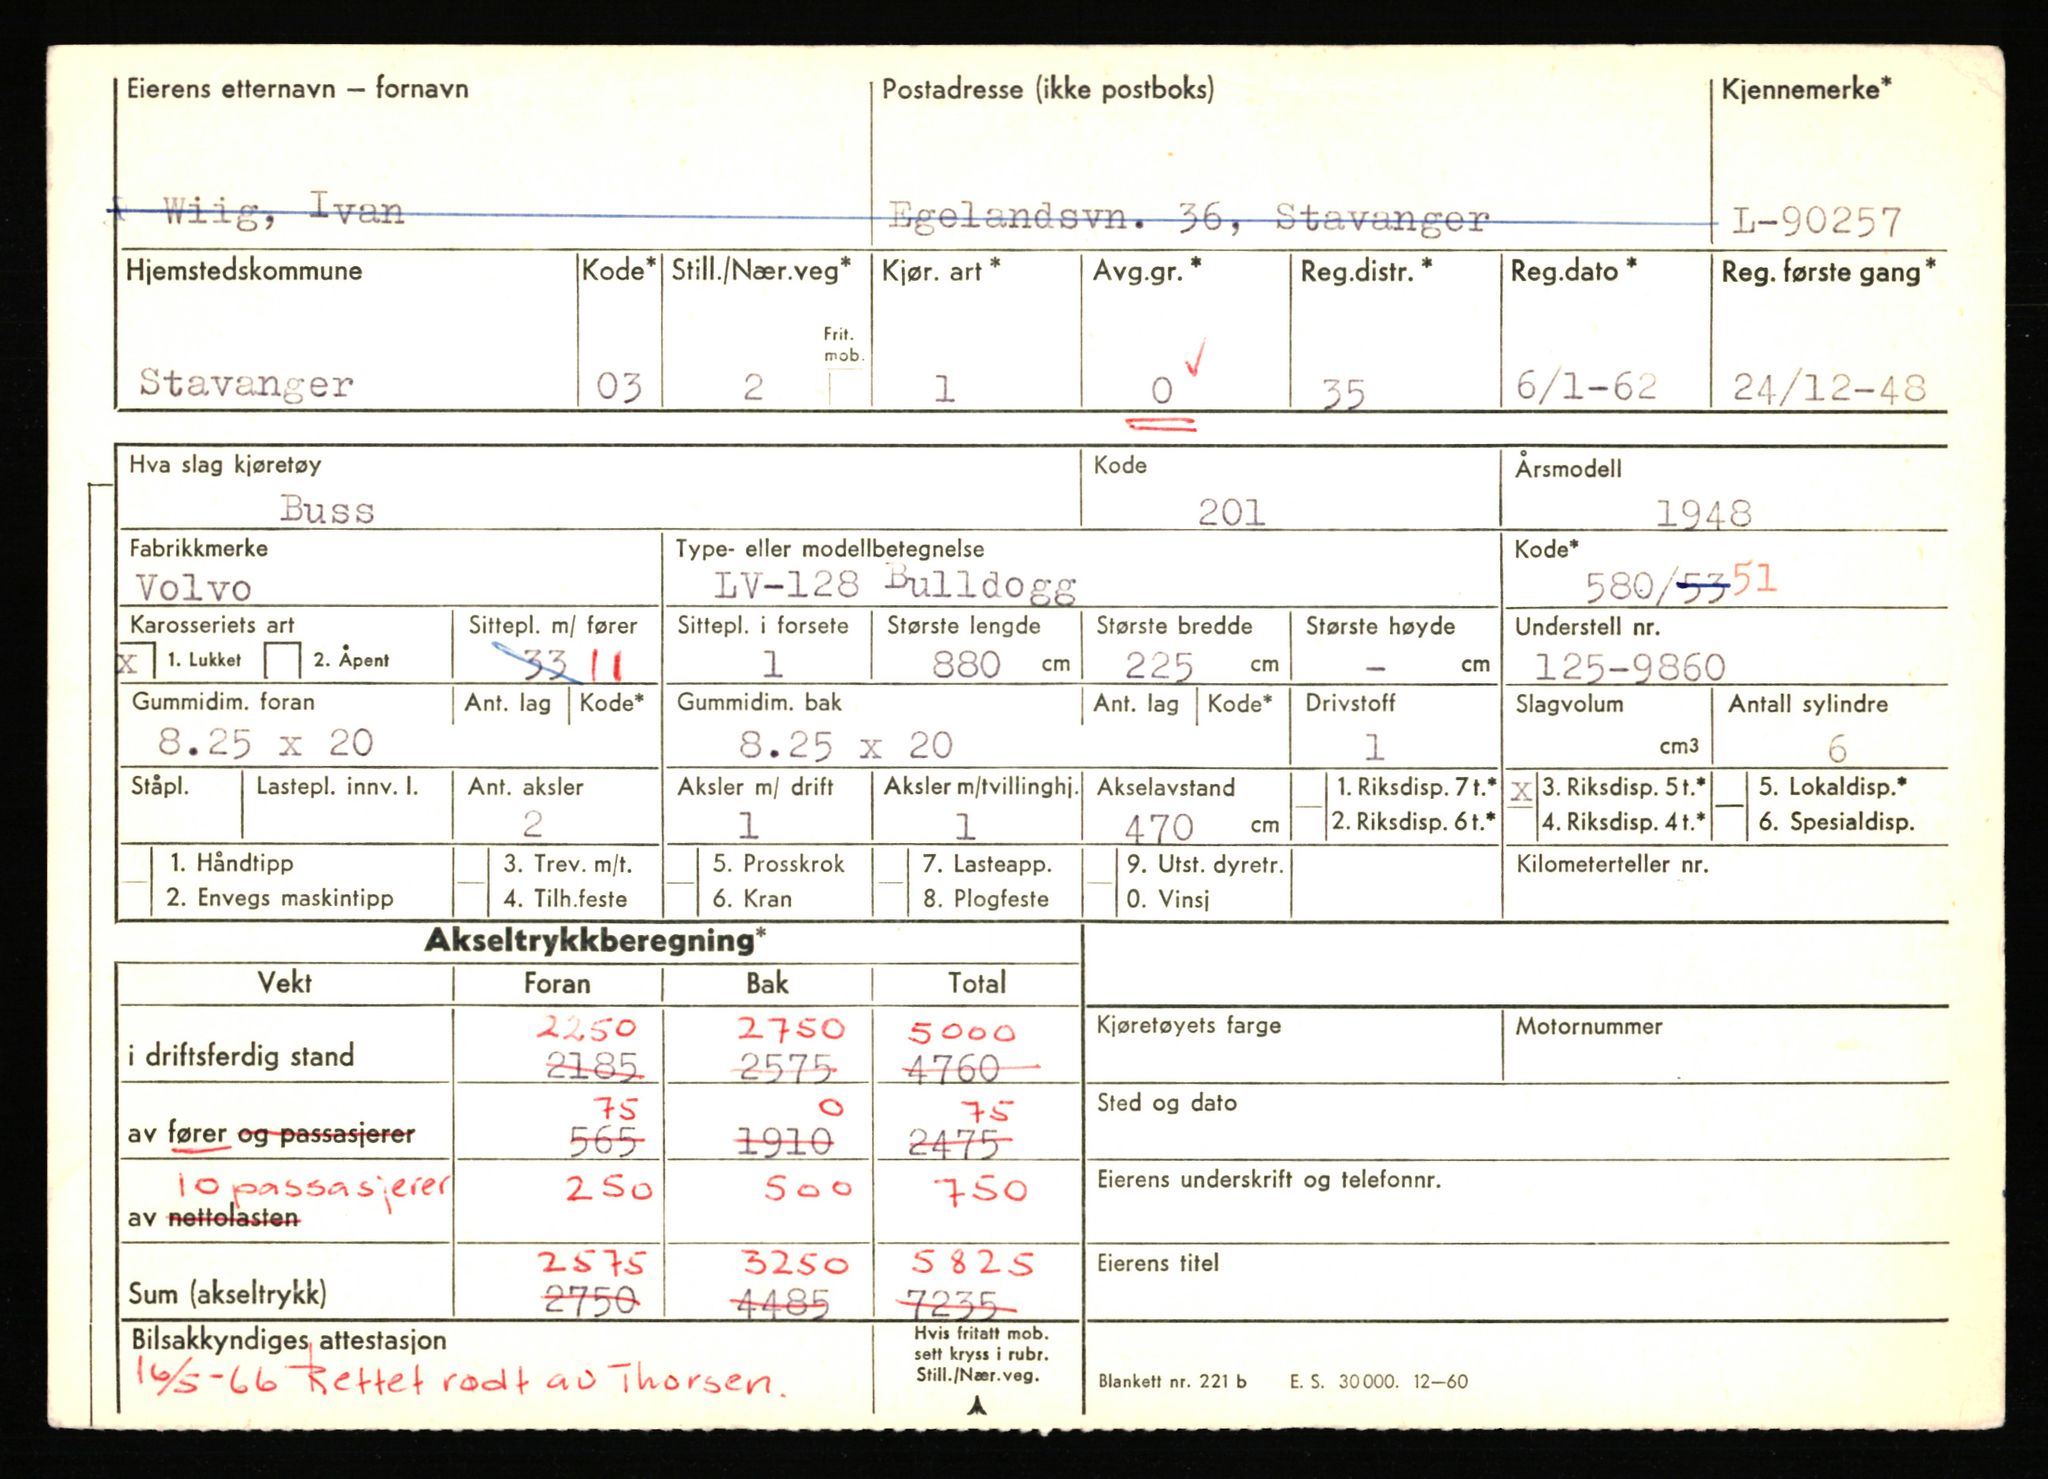 Eierens etternavn – fornavn
Postadresse (ikke postboks)
Kjennemerke*
Wiig, Ivan
Egelandsvn. 36, Stavanger
L-90257
Hjemstedskommune
Kode*
Still./Nær.veg*
Kjør. art*
Avg.gr.*
Reg.distr.*
Reg.dato*
Reg. første gang*
Frit. mob.
Stavanger
03
2
1
0 ✓
35
6/1-62
24/12-48
Hva slag kjøretøy
Kode
Årsmodell
Buss
201
1948
Fabrikkmerke
Type- eller modellbetegnelse
Kode*
Volvo
LV-128 Bulldogg
580/53 51
Karosseriets art
Sittepl. m/ fører
Sittepl. i forsete
Største lengde
Største bredde
Største høyde
Understell nr.
x 1. Lukket 2. Åpent
33 11
1
880 cm
225 cm
- cm
125-9860
Gummidim. foran
Ant. lag
Kode*
Gummidim. bak
Ant. lag
Kode*
Drivstoff
Slagvolum
Antall sylindre
8.25 x 20
8.25 x 20
1
cm3
6
Ståpl.
Lastepl. innv. l.
Ant. aksler
Aksler m/ drift
Aksler m/tvillinghj.
Akselavstand
1. Riksdisp. 7 t.*
x 3. Riksdisp. 5 t.*
5. Lokaldisp.*
2
1
1
470 cm
2. Riksdisp. 6 t.*
4. Riksdisp. 4 t.*
6. Spesialdisp.
1. Håndtipp
3. Trev. m/t.
5. Prosskrok
7. Lasteapp.
9. Utst. dyretr.
Kilometerteller nr.
2. Envegs maskintipp
4. Tilh.feste
6. Kran
8. Plogfeste
0. Vinsj
Akseltrykkberegning*
Vekt
Foran
Bak
Total
2250
2750
5000
Kjøretøyets farge
Motornummer
i driftsferdig stand
2185
2575
4760
75
0
75
Sted og dato
av fører og passasjerer
565
1910
2475
10 passasjerer
250
500
750
Eierens underskrift og telefonnr.
av nettolasten
2575
3250
5825
Eierens titel
Sum (akseltrykk)
2750
4485
7235
Bilsakkyndiges attestasjon
Hvis fritatt mob.
sett kryss i rubr.
Still./Nær.veg.
16/5-66 Rettet rødt av Thorsen.
Blankett nr. 221 b E. S. 30 000. 12–60